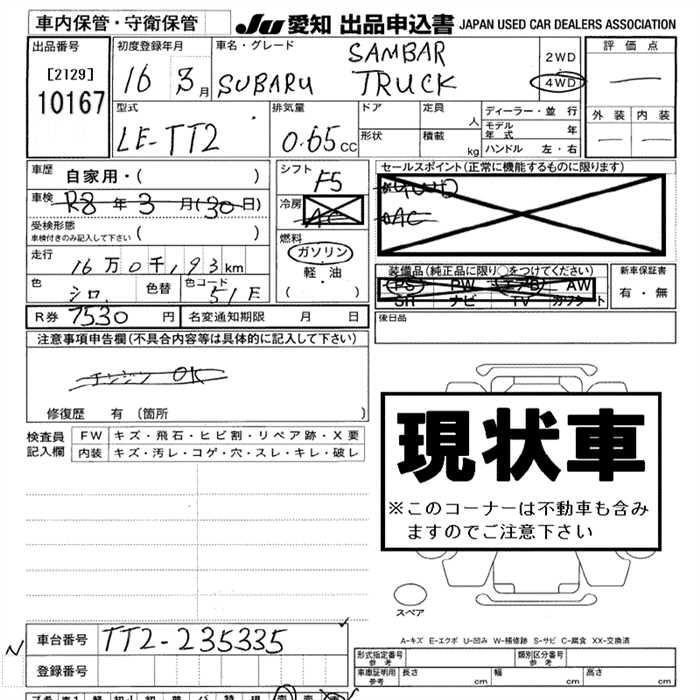 車内保管・守衛保管
JU 愛知 出品申込書 JAPAN USED CAR DEALERS ASSOCIATION
出品番号 初度登録年月 車名・グレード 2WD 評価点
[2129] 16 3月 SUBARU SAMBAR TRUCK 4WD
10167
外装 内装
型式 排気量 ドア 定員 人 ディーラー・並行
LE-TT2 0.65cc 形状 積載 kg モデル年式 年
ハンドル 左・右
車歴 自家用・( ) シフト F5 セールスポイント(正常に機能するものに限ります)
車検 R8年3月(30日) 冷房 AC
AC
受検形態 ( )
車検付きのみ記入して下さい
燃料 ガソリン
軽・油
( ・ )
走行 16万0千193km 装備品(純正品に限り○をつけてください) 新車保証書
PS PW エアB AW 有・無
SR ナビ TV カワシート
色 シロ 色替 色コード 51E
R券 7530円 名変通知期限 月 日 後日品
注意事項申告欄(不具合内容等は具体的に記入して下さい)
エンジン OK
修復歴 有 〔箇所 〕
現状車
※このコーナーは不動車も含み
ますのでご注意下さい
検査員 FW キズ・飛石・ヒビ割・リペア跡・X要
記入欄 内装 キズ・汚レ・コゲ・穴・スレ・キレ・破レ
スペア
A-キズ E-エクボ U-凹み W-補修跡 S-サビ C-腐食 XX-交換済
N 車台番号 TT2-235335
登録番号
形式指定番号 参考 類別区分番号 参考
車庫証明用 参考 長さ cm 幅 cm 高さ cm